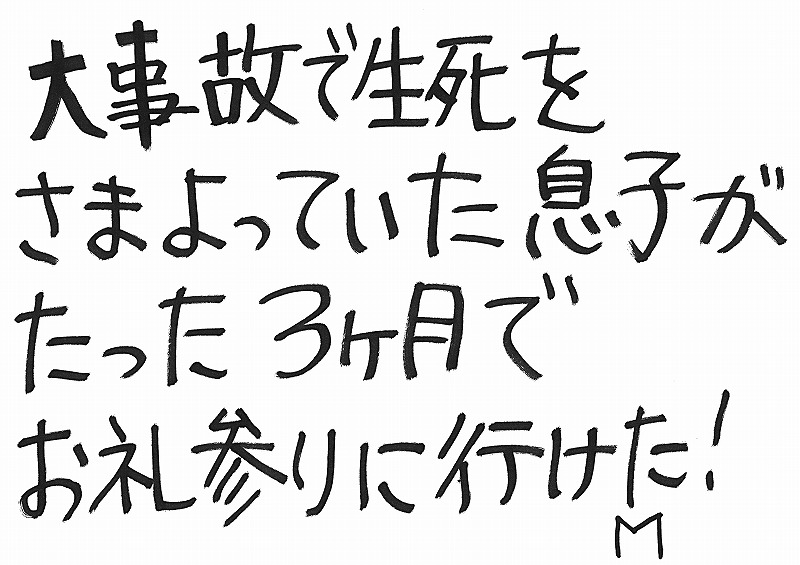 大事故で生死を
さまよっていた息子が
たった3ヶ月で
お礼参りに行けた!
M